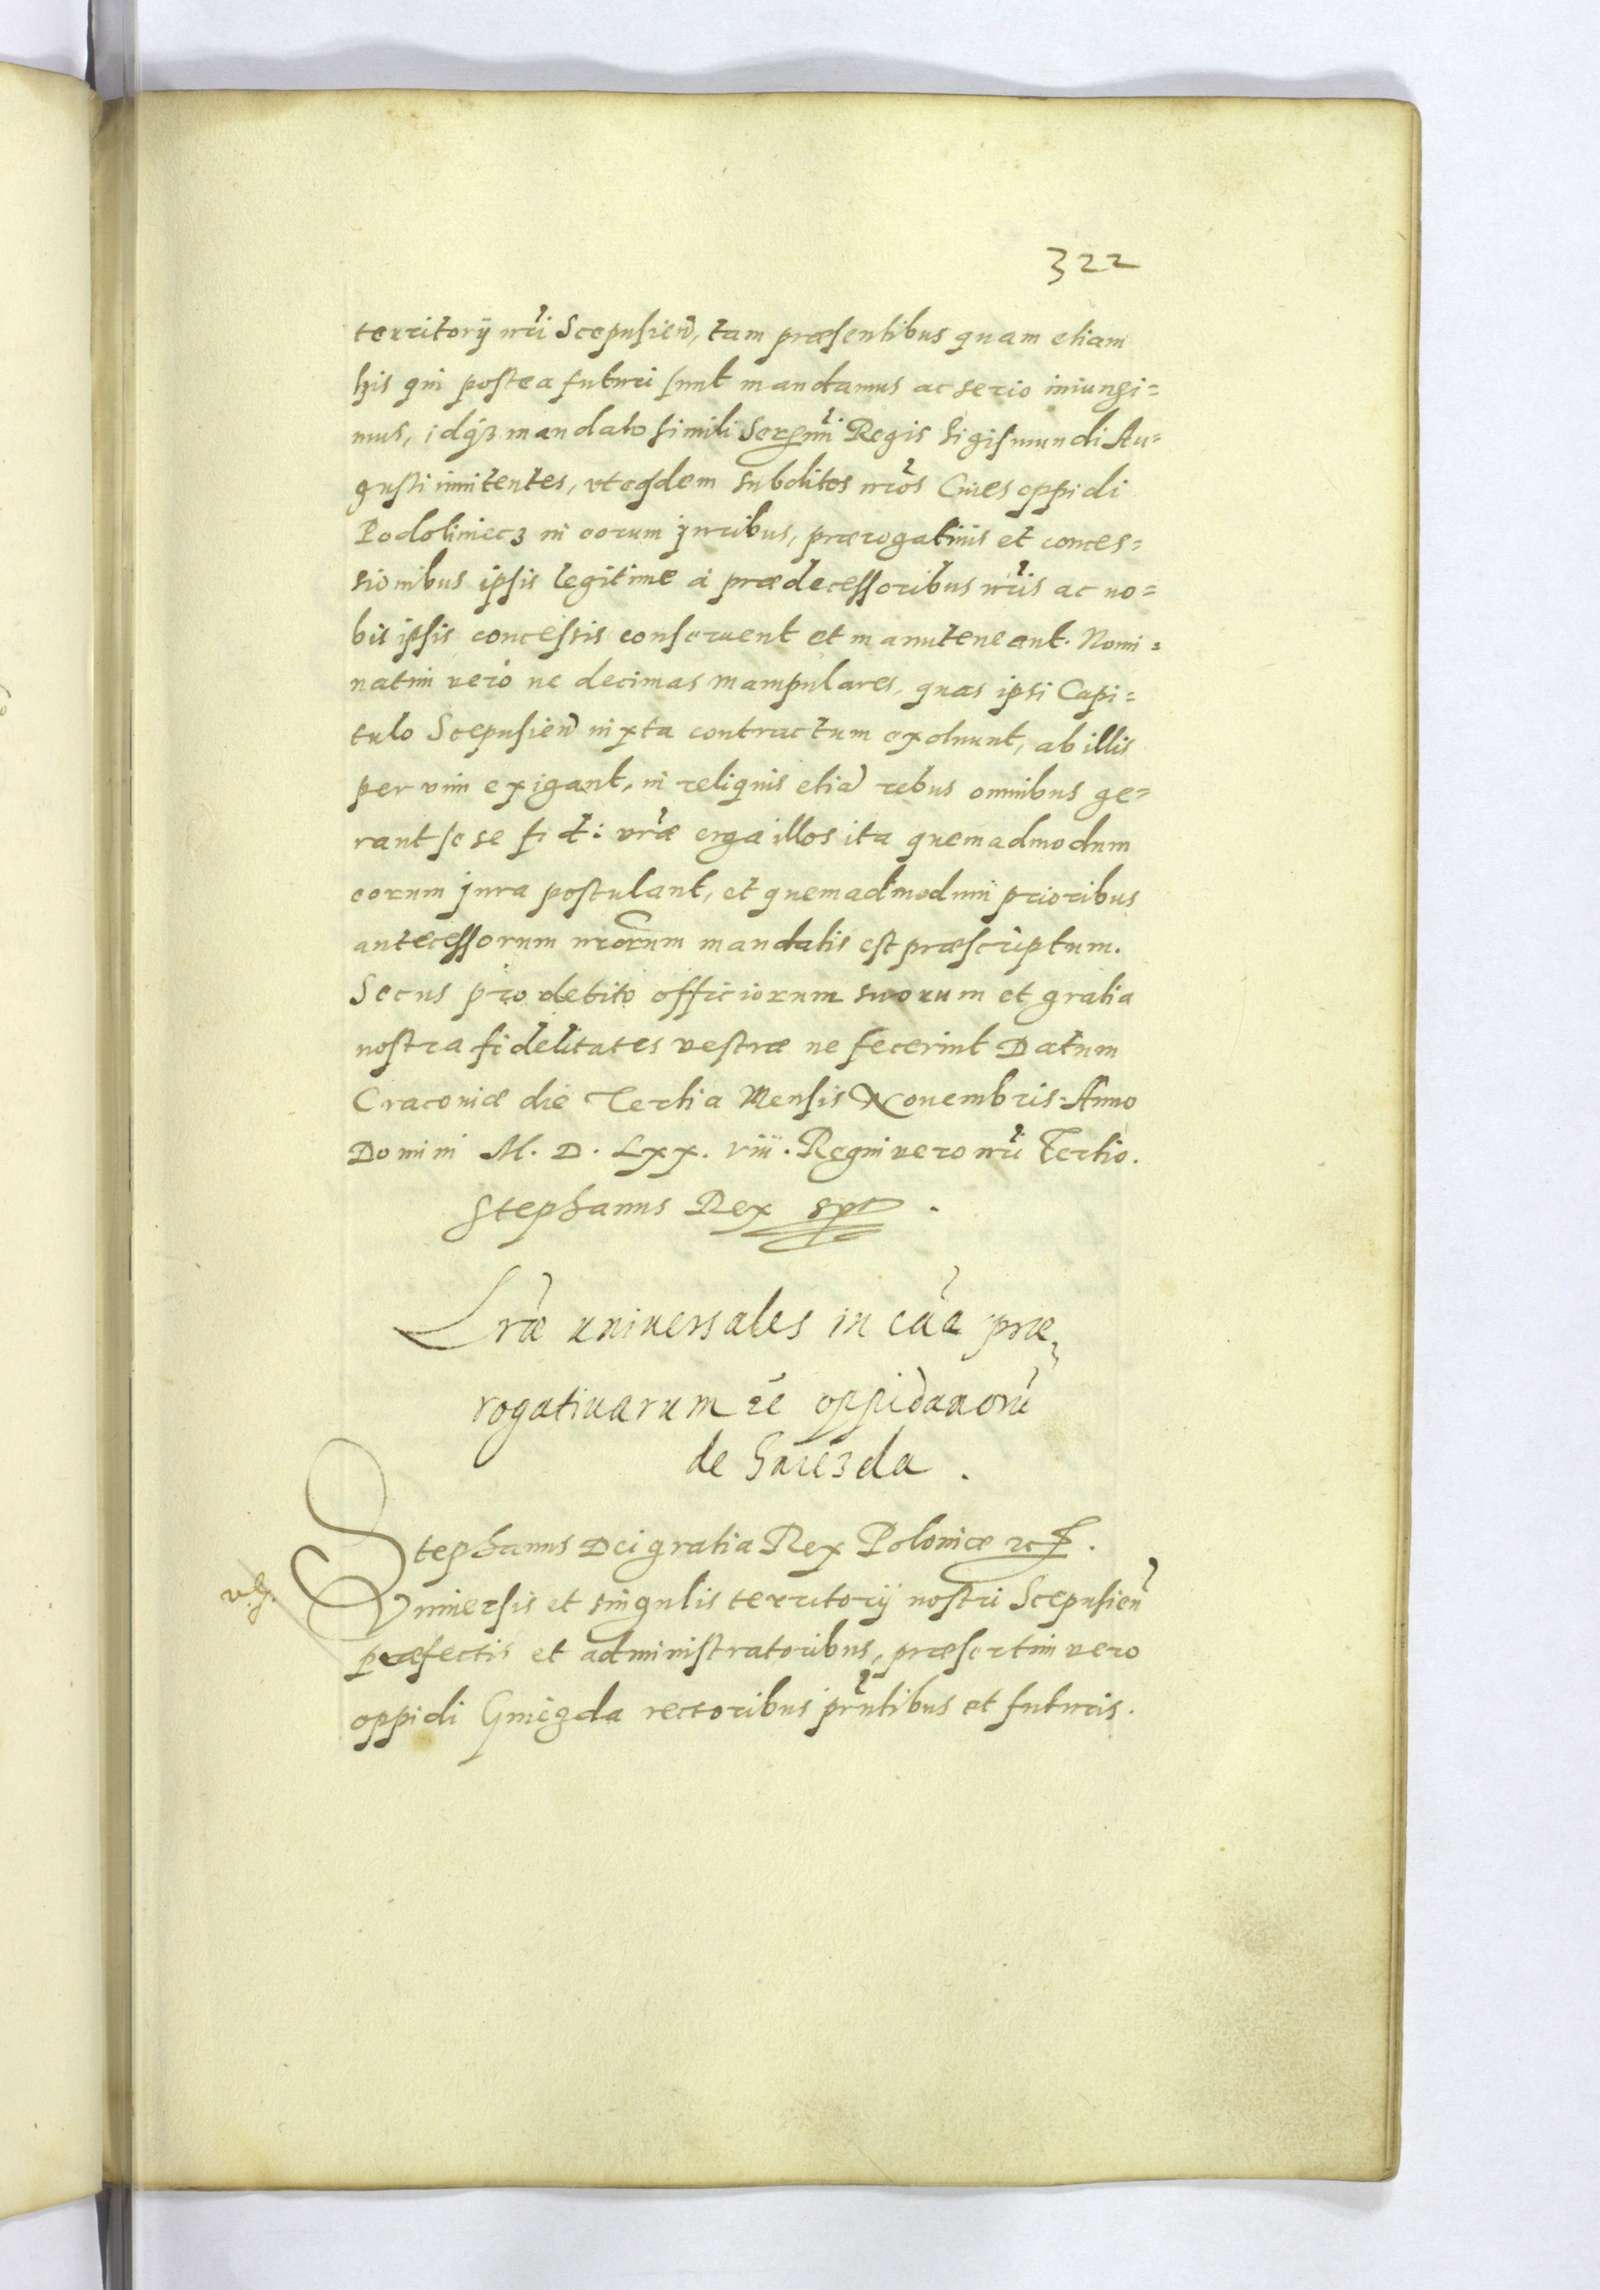 322
territorij nr̃i Scepusien̄, tam præsentibus quam etiam
his qui postea futuri sunt mandamus ac serio iniungi=
mus, idqꝫ mandato simili Serenm̃i Regis Sigismundi Au=
gusti innitentes, vt eosdem subditos nr̃os Ciues oppidi
Podoliniecz in eorum juribus, prærogatiuis et conces=
sionibus ipsis legitime à prædecessoribus nr̃is ac no=
bis ipsis concessis conseruent et manuteneant. Nomi=
natim verò ne decimas manipulares, quas ipsi Capi=
tulo Scepusien̄ iuxta contractum exoluunt, ab illis
per vim exigant, in reliquis etiā rebus omnibus ge=
rant se se fid: vr̃æ erga illos ita quemadmodum
eorum jura postulant, et quemadmodum prioribus
antecessorum nr̃orum mandatis est præscriptum.
Secus pro debito officiorum suorum et gratia
nostra fidelitates vestræ ne fecerint Datum
Cracouiæ die Tertia Mensis Nouembris Anno
Domini M. D. Lxx. viii. Regni vero nr̃i Tertio.
Stephanus Rex sp̃t.
Lr̃æ vniuersales in cãa præ
rogatiuarum et oppidanorū
de Gniezda.
Stephanus Dei gratia Rex Poloniæ etc.
Vniuersis et singulis territorij nostri Scepusien̄
præfectis et administratoribus, præsertim vero
oppidi Gniezda rectoribus pr̃ntibus et futuris.